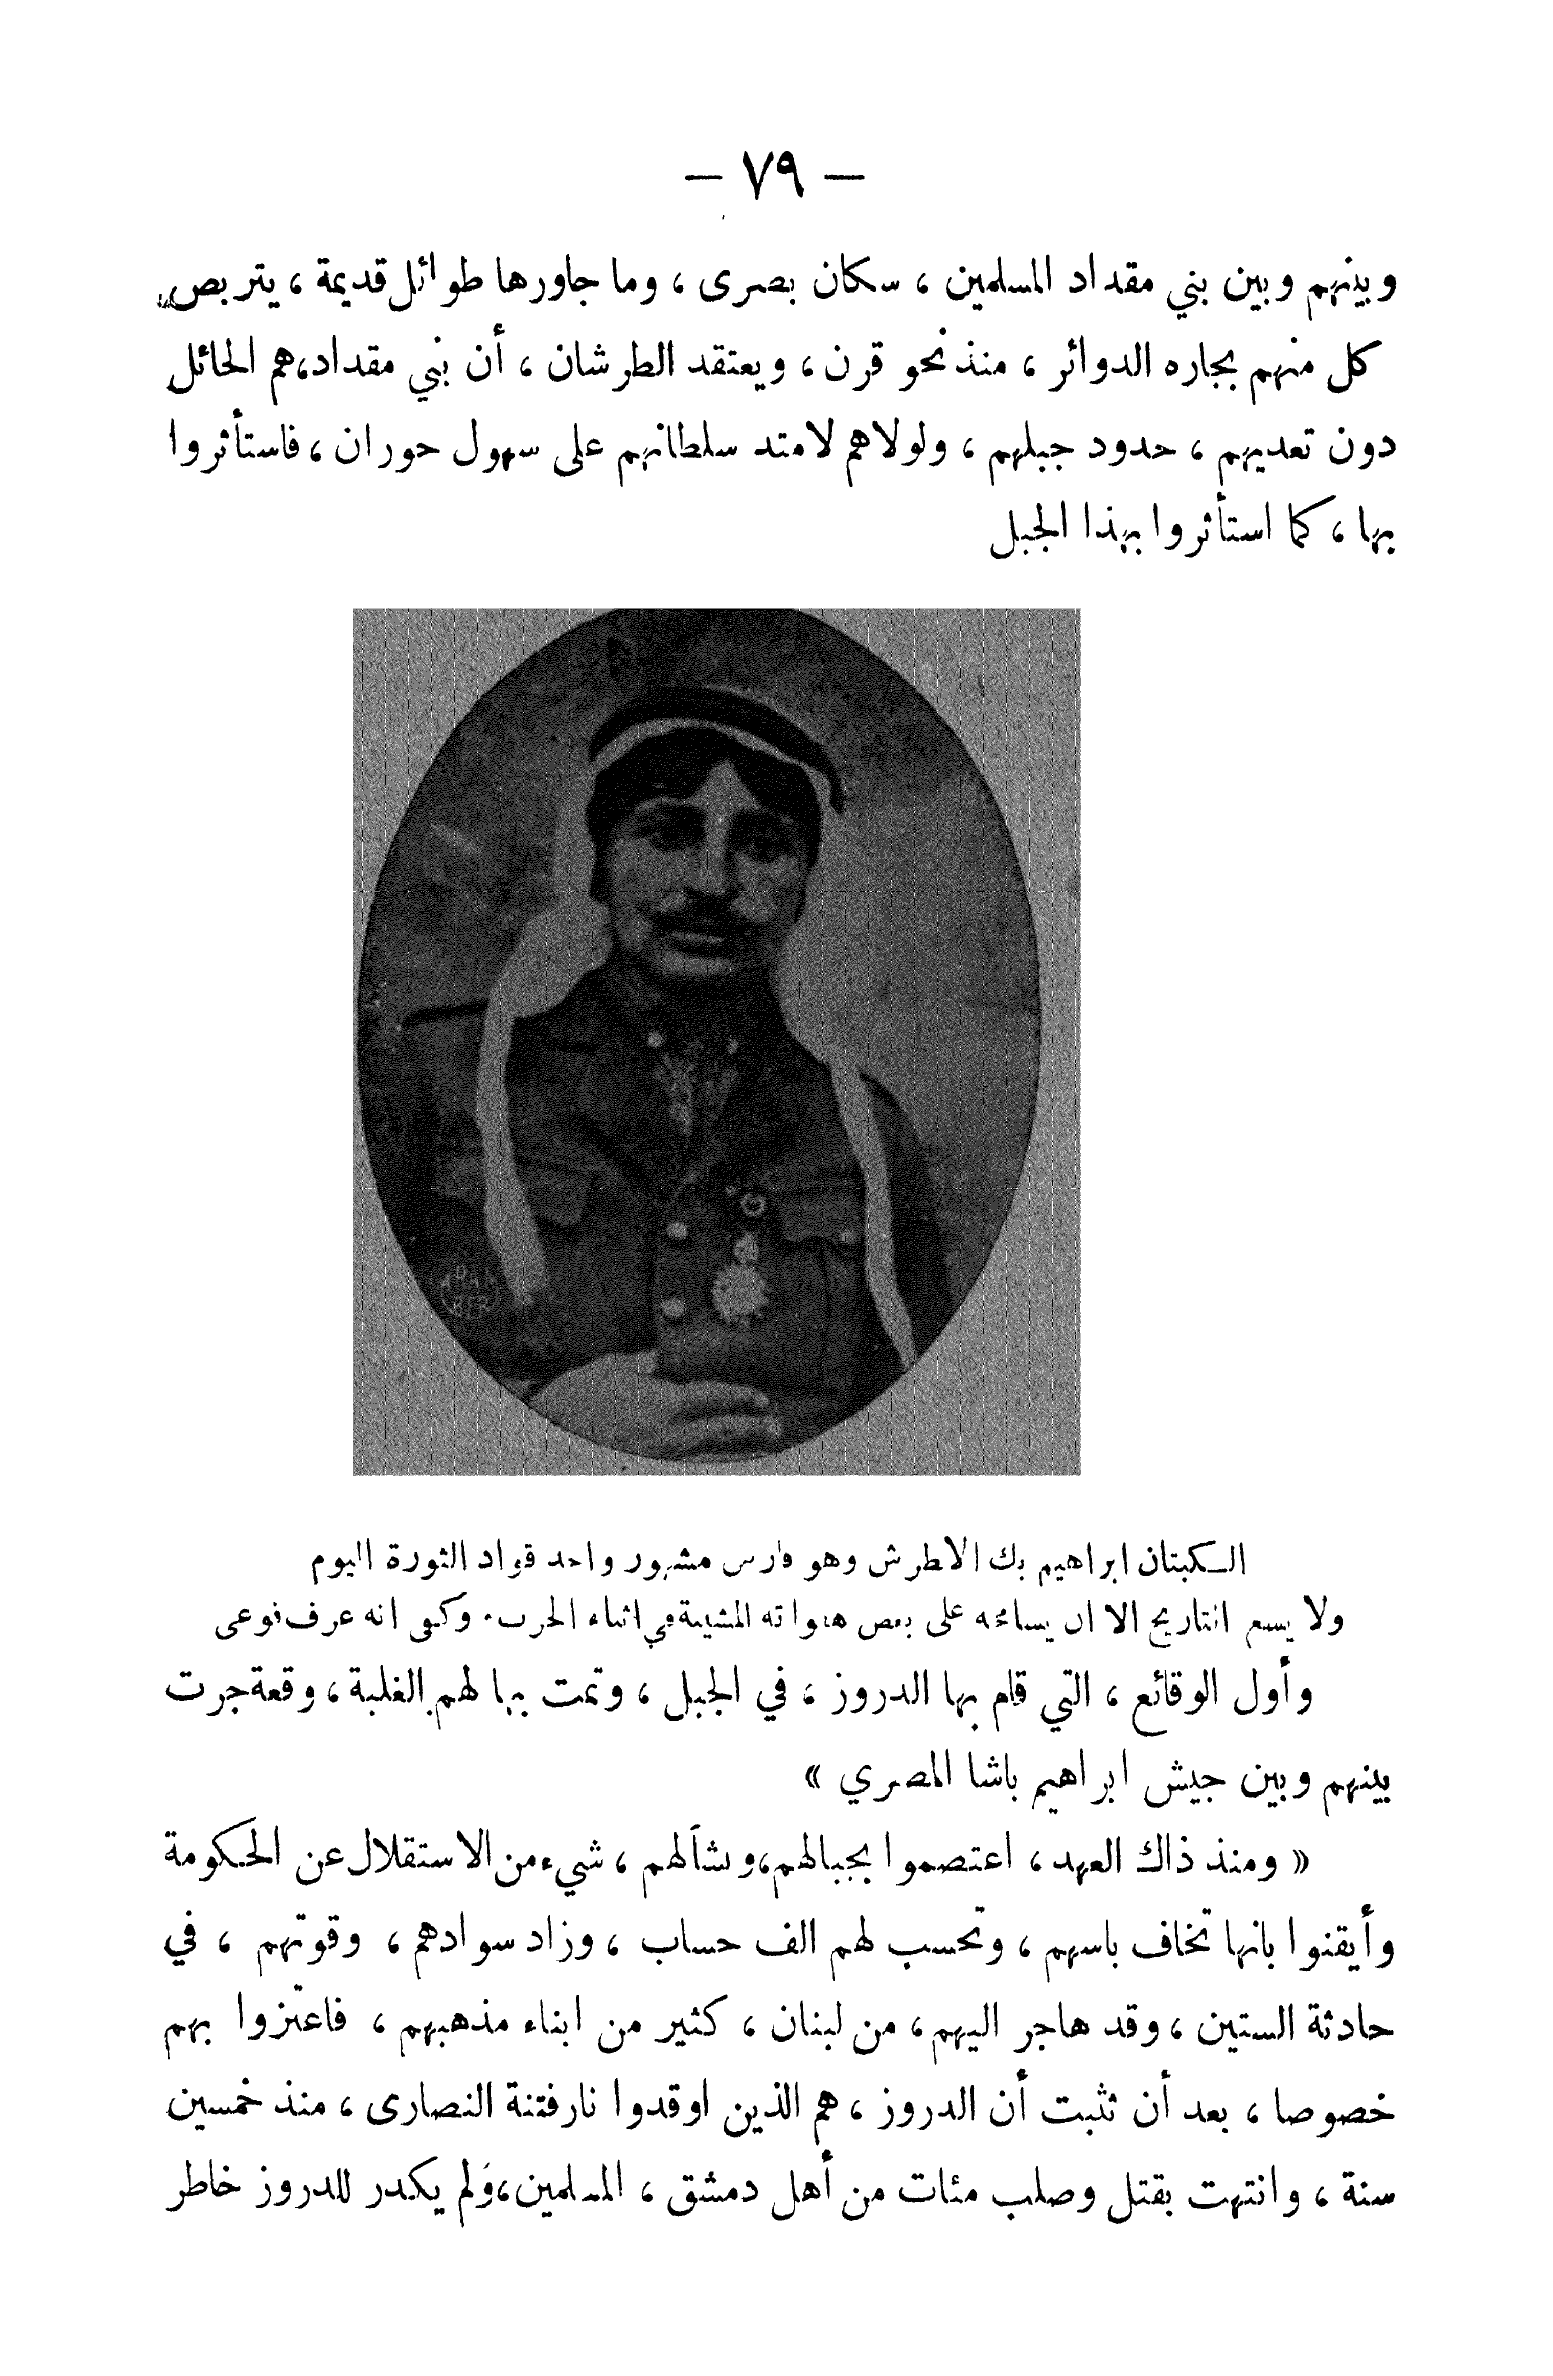 — ٧٩ —
وبينهم وبين بني مقداد المسلمين ، سكان بصرى ، وما جاورها طوائل قديمة ، يتربص
كل منهم بجاره الدوائر ، منذ نحو قرن ، ويعتقد الطرشان ، أن بني مقداد، هم الحائل
دون تعديهم ، حدود جبلهم ، ولولاهم لامتد سلطانهم على سهول حوران ، فاستأثروا
بها ، كما استأثروا بهذا الجبل
الكبتان ابراهيم بك الاطرش وهو فارس مشهور واحد قواد الثورة اليوم
ولا يسع التاريخ الا ان يسامحه على بعض هفواته المشينة في اثناء الحرب . وكفى انه عرف
وأول الوقائع ، التي قام بها الدروز ، في الجبل ، وتمت بها لهم الغلبة ، وقعة جرت
بينهم وبين جيش ابراهيم باشا المصري »
« ومنذ ذاك العهد ، اعتصموا بجبالهم، ونشأ لهم ، شيء من الاستقلال عن الحكومة
وأيقنوا بانها تخاف باسهم ، وتحسب لهم الف حساب ، وزاد سوادهم ، وقوتهم ، في
حادثة الستين ، وقد هاجر اليهم ، من لبنان ، كثير من ابناء مذهبهم ، فاعتزوا بهم
خصوصا ، بعد أن ثبت أن الدروز ، هم الذين اوقدوا نار فتنة النصارى ، منذ خمسين
سنة ، وانتهت بقتل وصلب مئات من أهل دمشق ، المسلمين، ولم يكدر للدروز خاطر